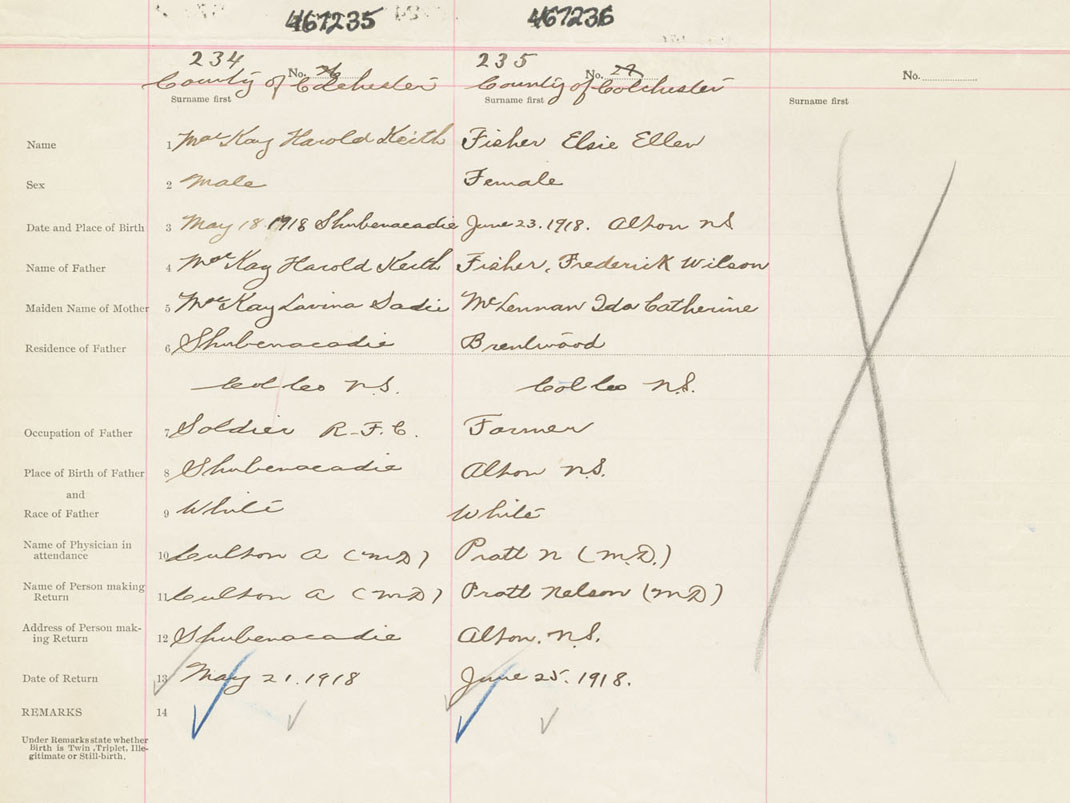 467235 467236
234 235
No. 26 No. 27 No.
County of Colchester County of Colchester
Surname first Surname first Surname first
Name 1 McKay Harold Keith Fisher Elsie Ellen
Sex 2 Male Female
Date and Place of Birth 3 May 18 1918 Shubenacadie June 23. 1918. Alton NS
Name of Father 4 McKay Harold Keith Fisher, Frederick Wilson
Maiden Name of Mother 5 McKay Lavina Sadie McLennan Ida Catherine
Residence of Father 6 Shubenacadie Brentwood
Col Co N.S. Col Co N.S.
Occupation of Father 7 Soldier R-F.C. Farmer
Place of Birth of Father 8 Shubenacadie Alton N.S.
and
Race of Father 9 White White
Name of Physician in
attendance 10 A (MD) Pratt N (M.D.)
Name of Person making
Return 11 A (MD) Pratt Nelson (MD)
Address of Person mak-
ing Return 12 Shubenacadie Alton. N.S.
Date of Return 13 May 21. 1918 June 25. 1918.
REMARKS 14
Under Remarks state whether
Birth is Twin, Triplet, Ille-
gitimate or Still-birth.